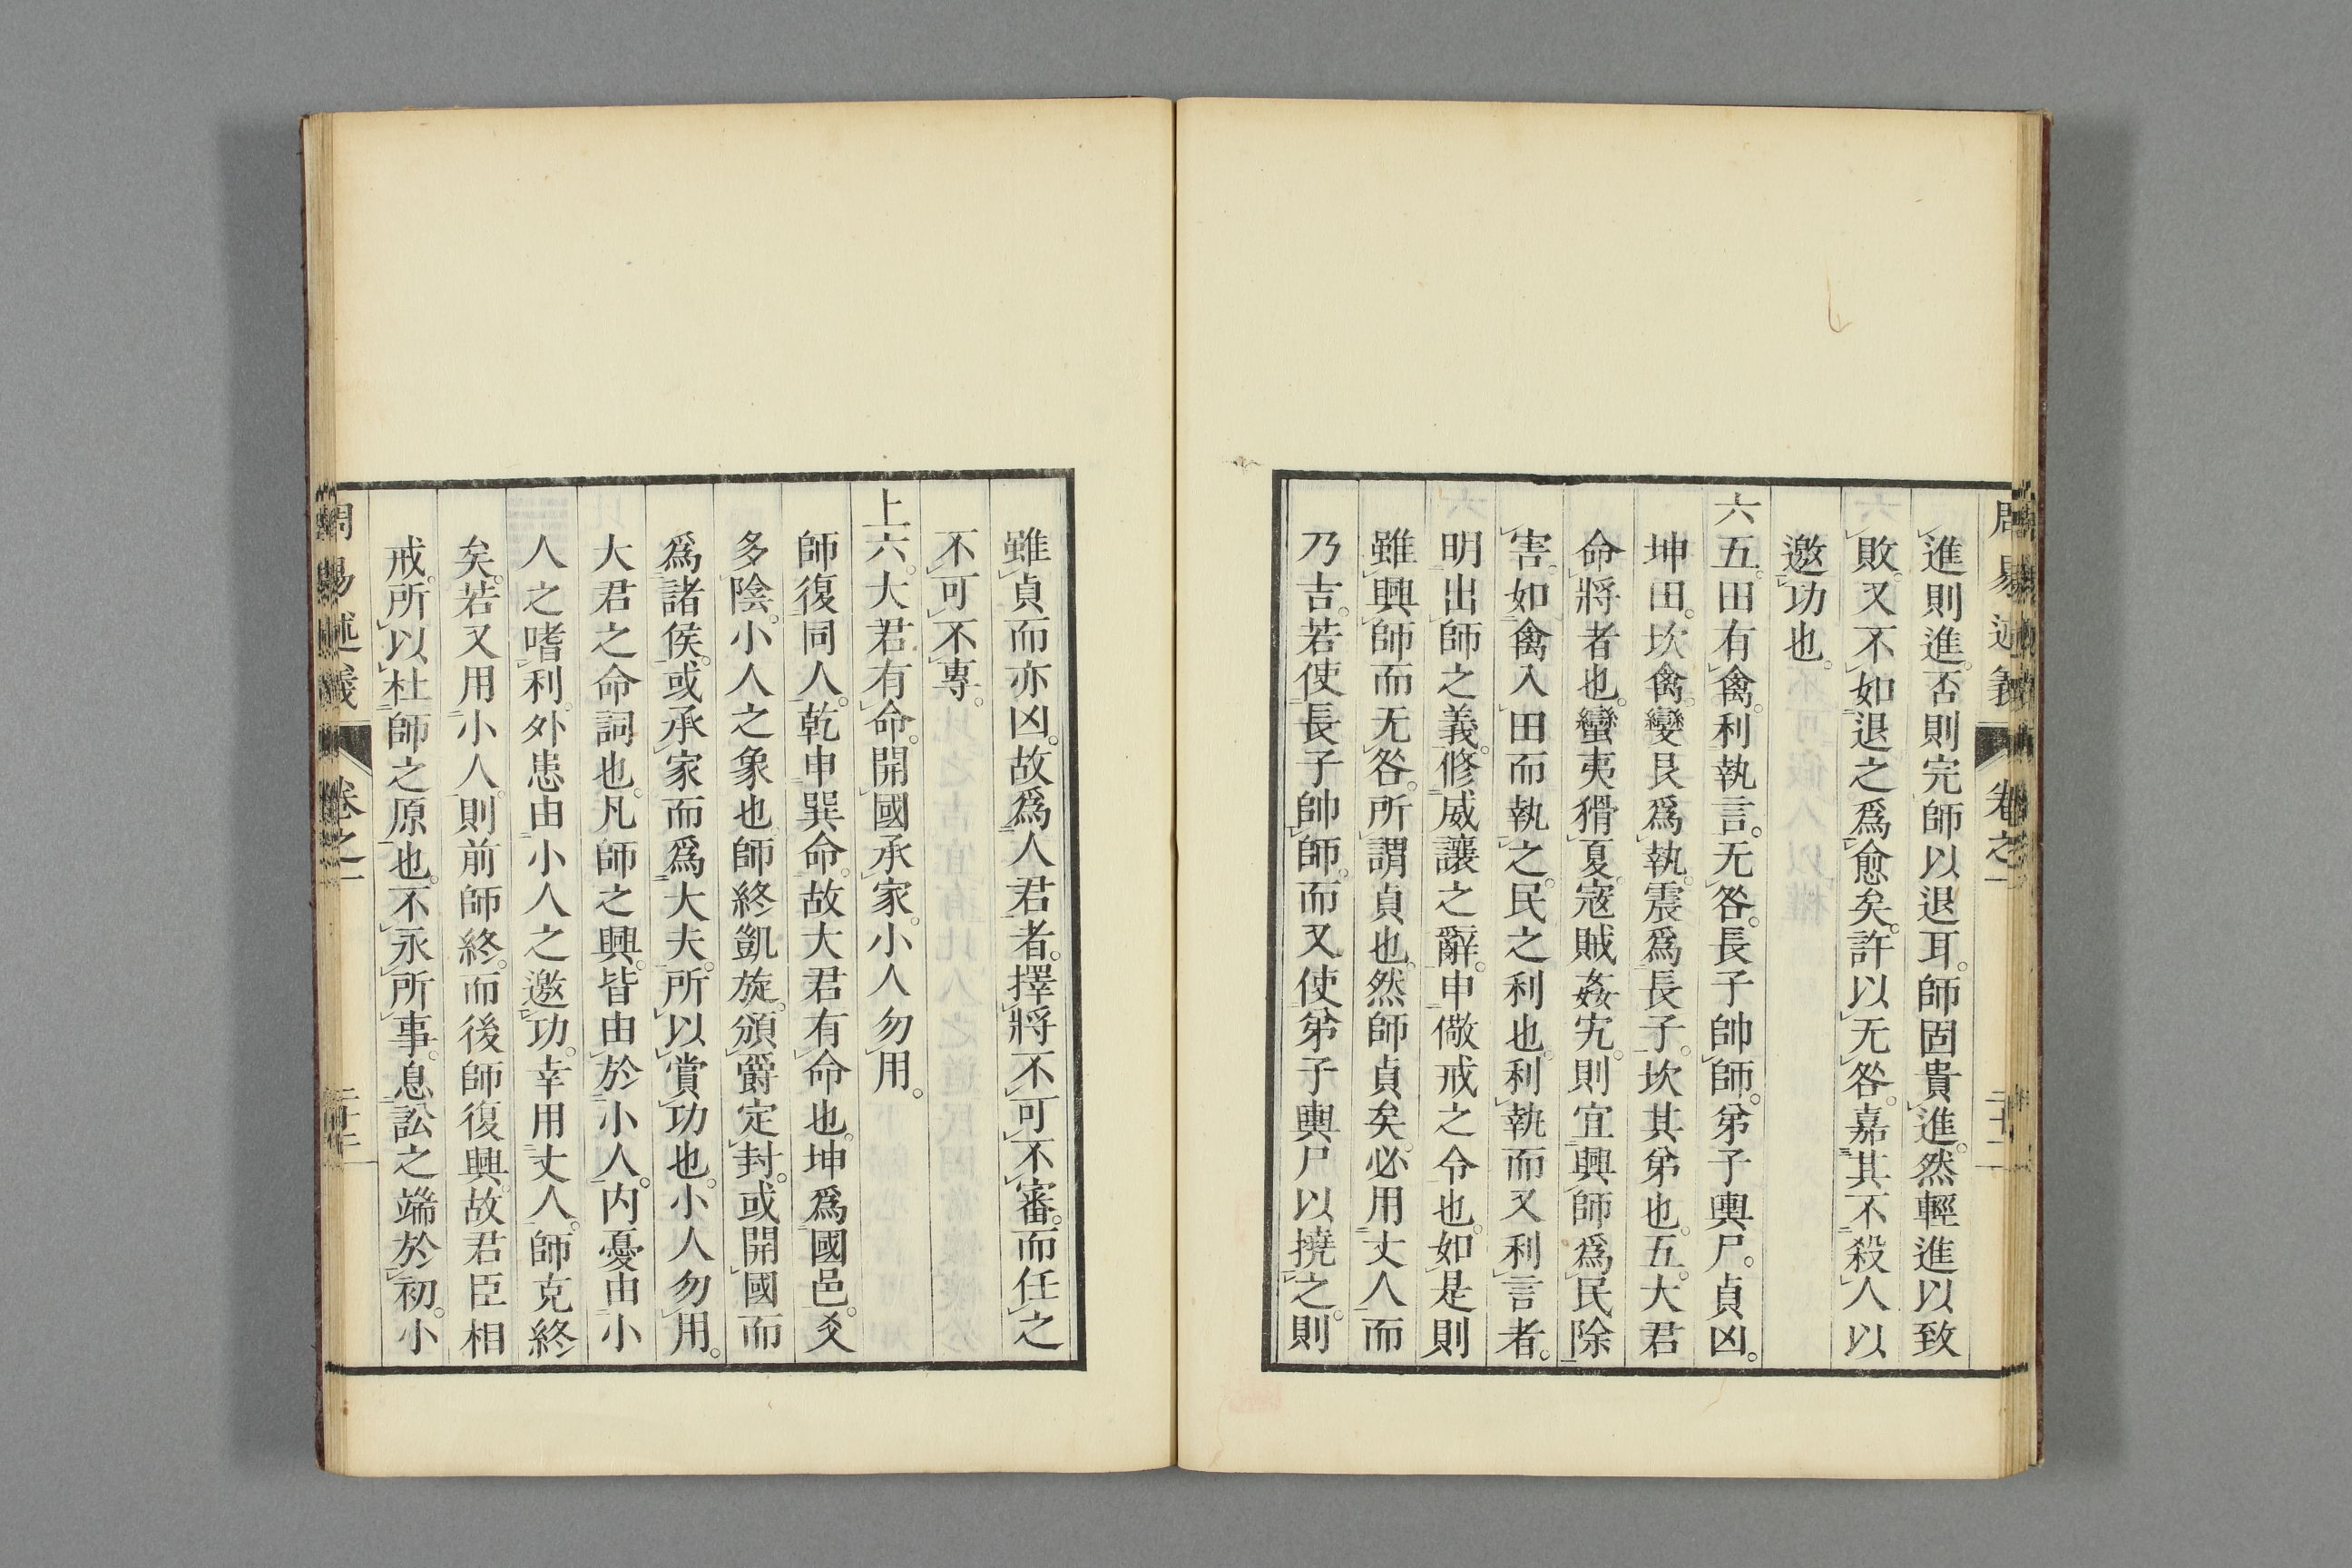 周易述義 卷之一 二十二
進則進。否則完師以退耳。師固貴進。然輕進以致
敗。又不如退之爲愈矣。許以无咎。嘉其不殺人以
邀功也。
六五。田有禽。利執言。无咎。長子帥師。弟子輿尸。貞凶。
坤田。坎禽。變艮爲執。震爲長子。坎其弟也。五。大君
命將者也。蠻夷猾夏。寇賊姦宄。則宜興師爲民除
害。如禽入田而執之。民之利也。利執而又利言者。
明出師之義。修威讓之辭。申儆戒之令也。如是則
雖興師而无咎。所謂貞也。然師貞矣。必用丈人而
乃吉。若使長子帥師。而又使弟子輿尸以撓之。則
雖貞而亦凶。故爲人君者。擇將不可不審。而任之
不可不專。
上六。大君有命。開國承家。小人勿用。
師復同人。乾申巽命。故大君有命也。坤爲國邑。爻
多陰。小人之象也。師終凱旋。頒爵定封。或開國而
爲諸侯。或承家而爲大夫。所以賞功也。小人勿用。
大君之命詞也。凡師之興。皆由於小人。内憂由小
人之嗜利。外患由小人之邀功。幸用丈人。師克終
矣。若又用小人。則前師終。而後師復興。故君臣相
戒。所以杜師之原也。不永所事。息訟之端於初。小
周易述義 卷之一